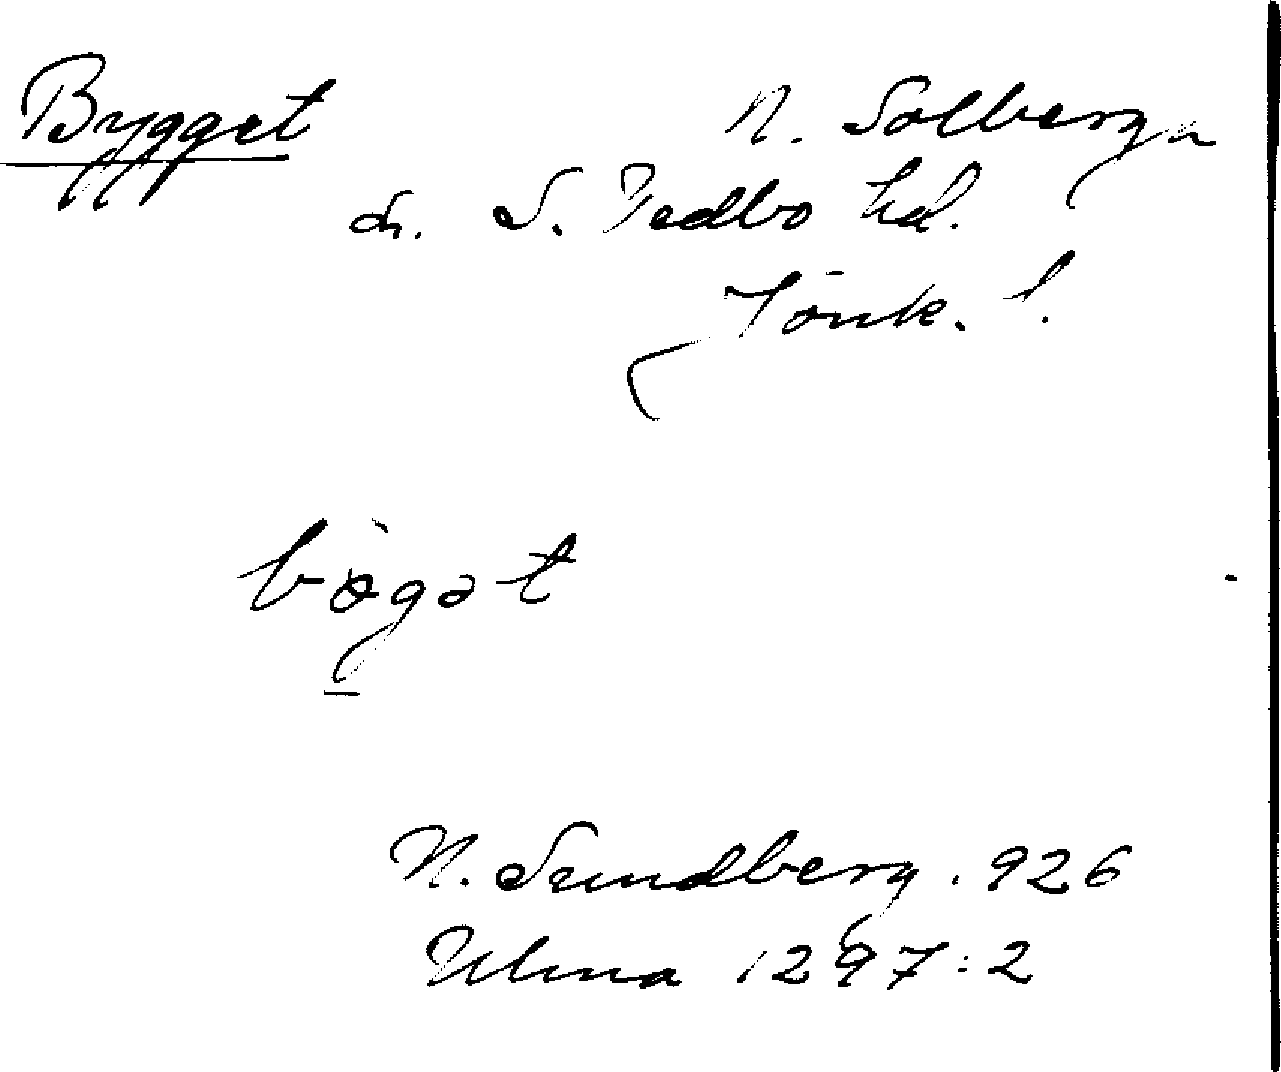 Bygget N. Solberga
sn. S. Vedbo hd.
Jönk. l.
bögət
N. Sundberg. 926
Ulma 1297:2